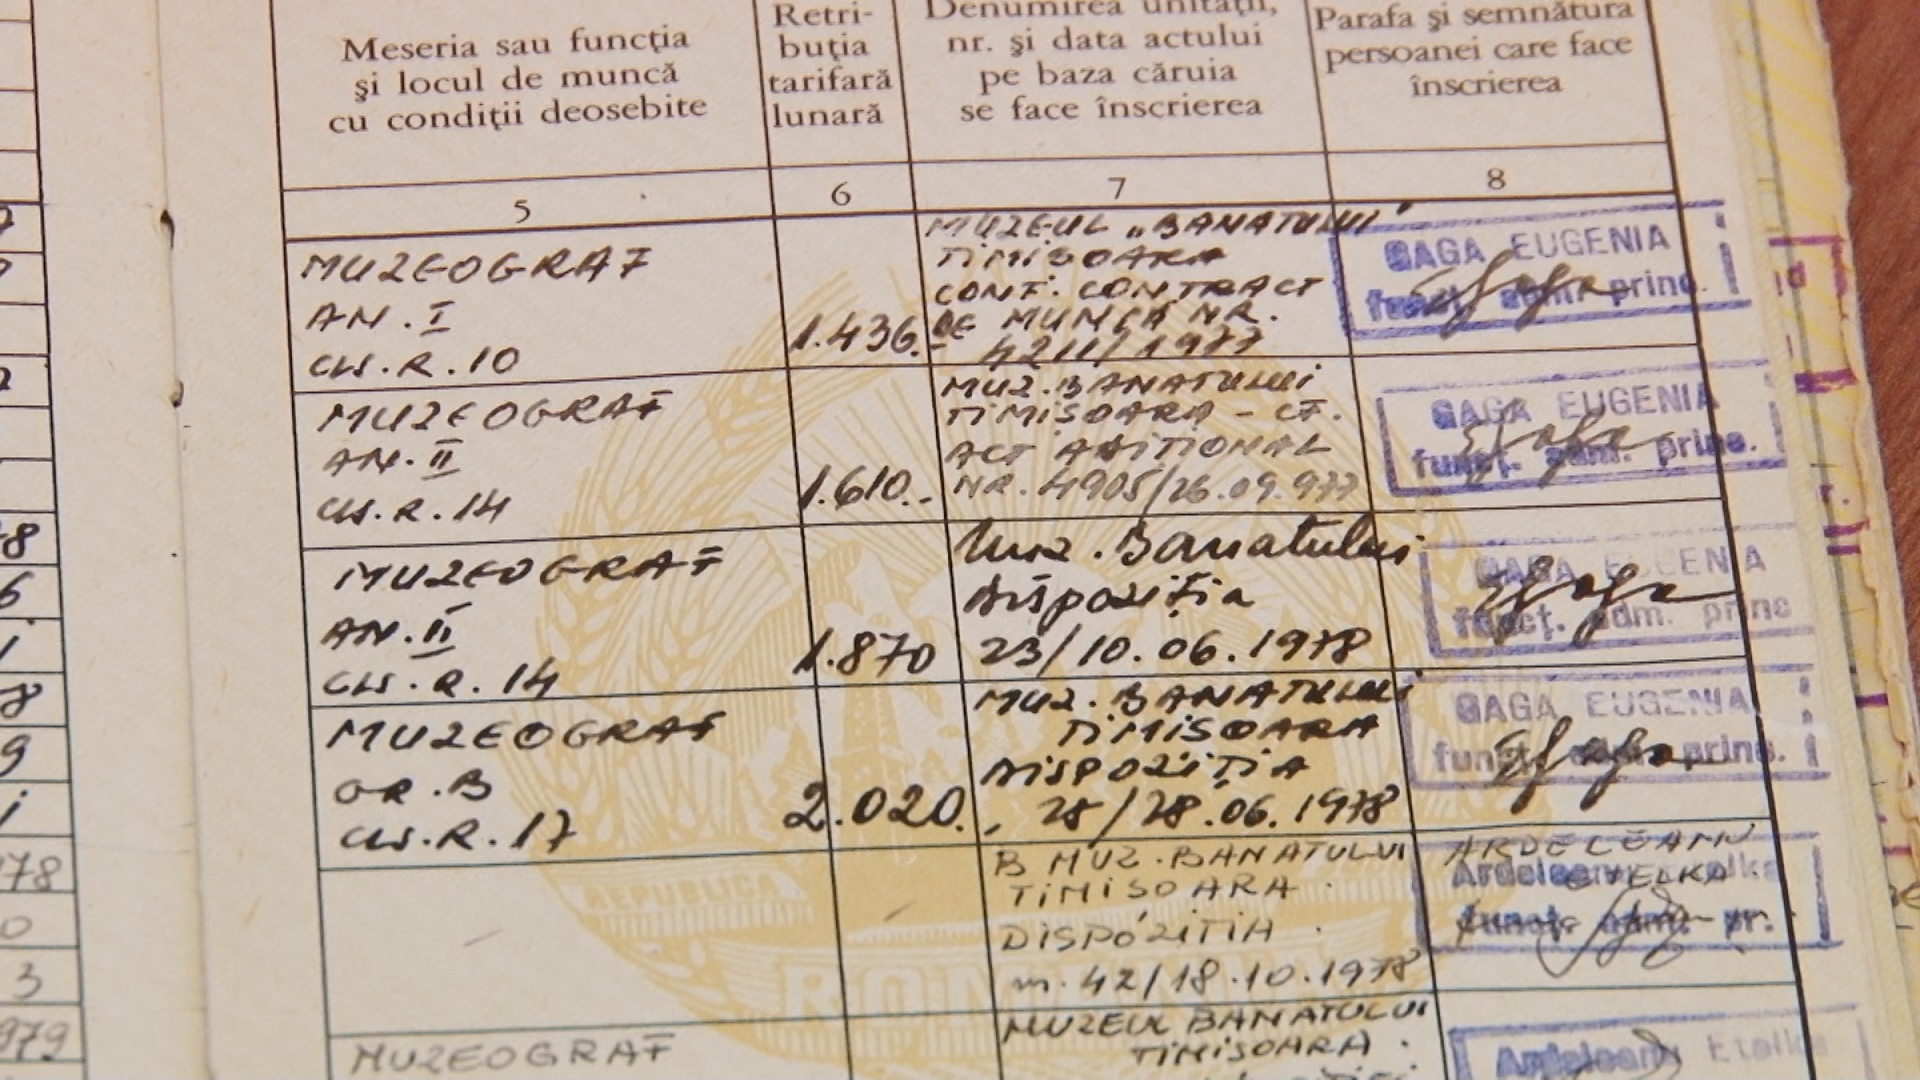 Meseria sau funcţia
şi locul de muncă
cu condiţii deosebite
Retri-
buţia
tarifară
lunară
Denumirea unităţii,
nr. şi data actului
pe baza căruia
se face înscrierea
Parafa şi semnătura
persoanei care face
înscrierea
5
6
7
8
MUZEOGRAF
AN. I
CLS. R. 10
1.436.-
MUZEUL „BANATULUI"
TIMISOARA
CONF. CONTRACT
DE MUNCĂ NR.
4211/1977
GAGA EUGENIA
funcţ. adm. princ.
MUZEOGRAF
AN. II
CLS. R. 14
1.610.-
MUZ. BANATULUI
TIMISOARA - CF.
ACT ADITIONAL
NR. 4905/26.09.977
GAGA EUGENIA
funcţ. adm. princ.
MUZEOGRAF
AN. II
CLS. R. 14
1.870
Muz. Banatului
Dispoziţia
23/10.06.1978
GAGA EUGENIA
funcţ. adm. princ
MUZEOGRAF
GR. B
CLS. R. 17
2.020.
MUZ. BANATULUI
TIMISOARA
DISPOZIŢIA
28.06.1978
GAGA EUGENIA
funcţ. adm. princ.
B MUZ. BANATULUI
TIMISOARA
DISPOZITIA
nr. 42/18.10.1978
ARDELEANU
ETELKA
Ardeleanu Etelka
funcţ. adm. pr.
MUZEOGRAF
MUZEUL BANATULUI
TIMISOARA
Ardeleanu Etelka
REPUBLICA
ROMÂNIA
78
3
979